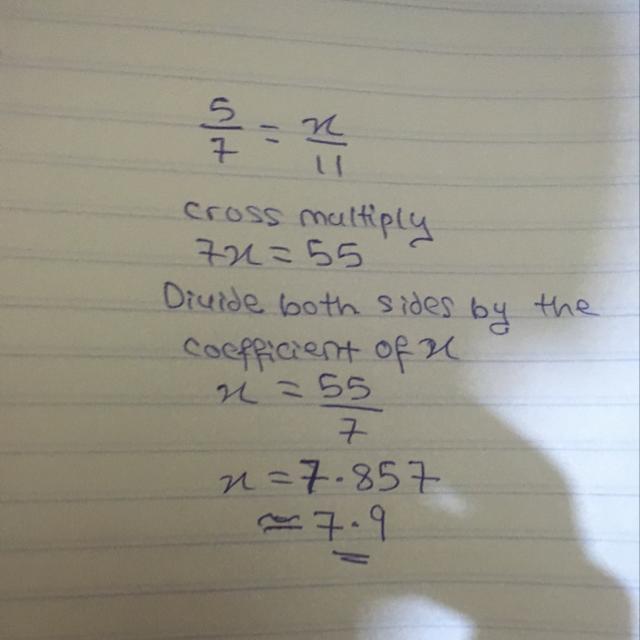 5/7 = x/11
cross multiply
7x = 55
Divide both sides by the
coefficient of x
x = 55/7
x = 7.857
≈ 7.9